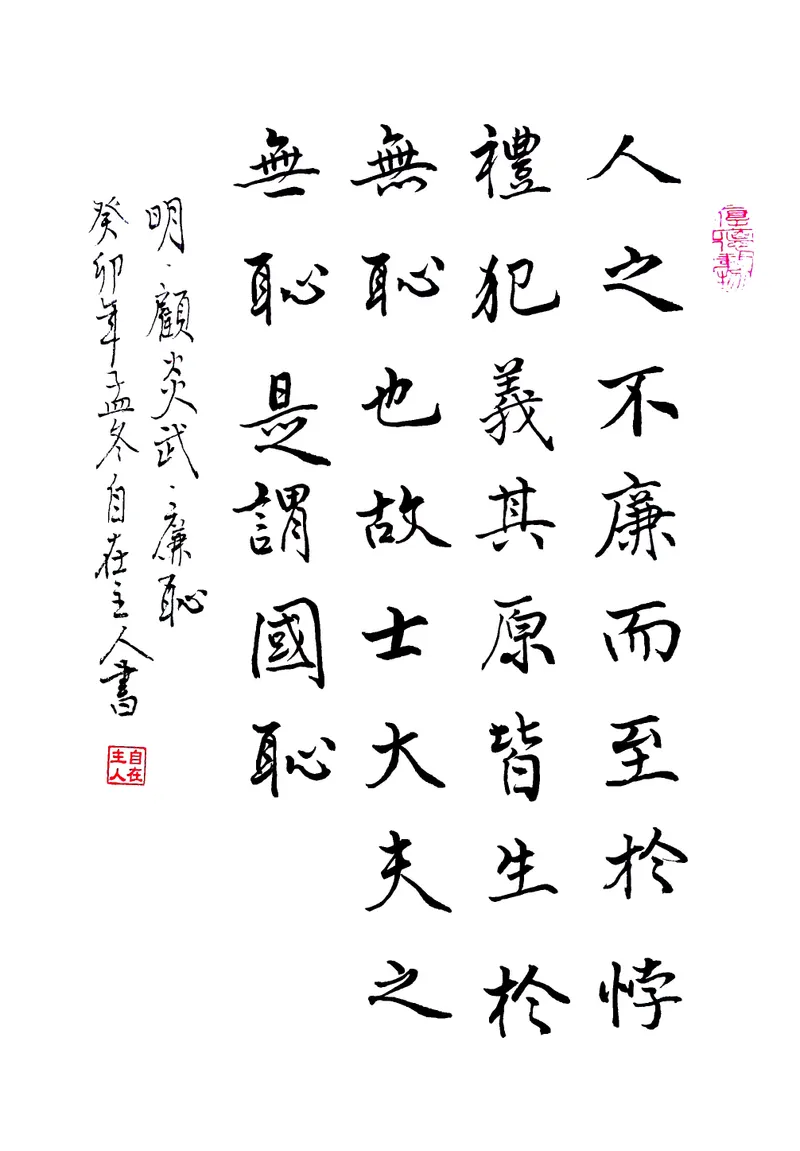 人之不廉而至於悖
禮犯義其原皆生於
無恥也故士大夫之
無恥是謂國恥
明、顧炎武、廉恥
癸卯年孟冬自在主人書
自在主人